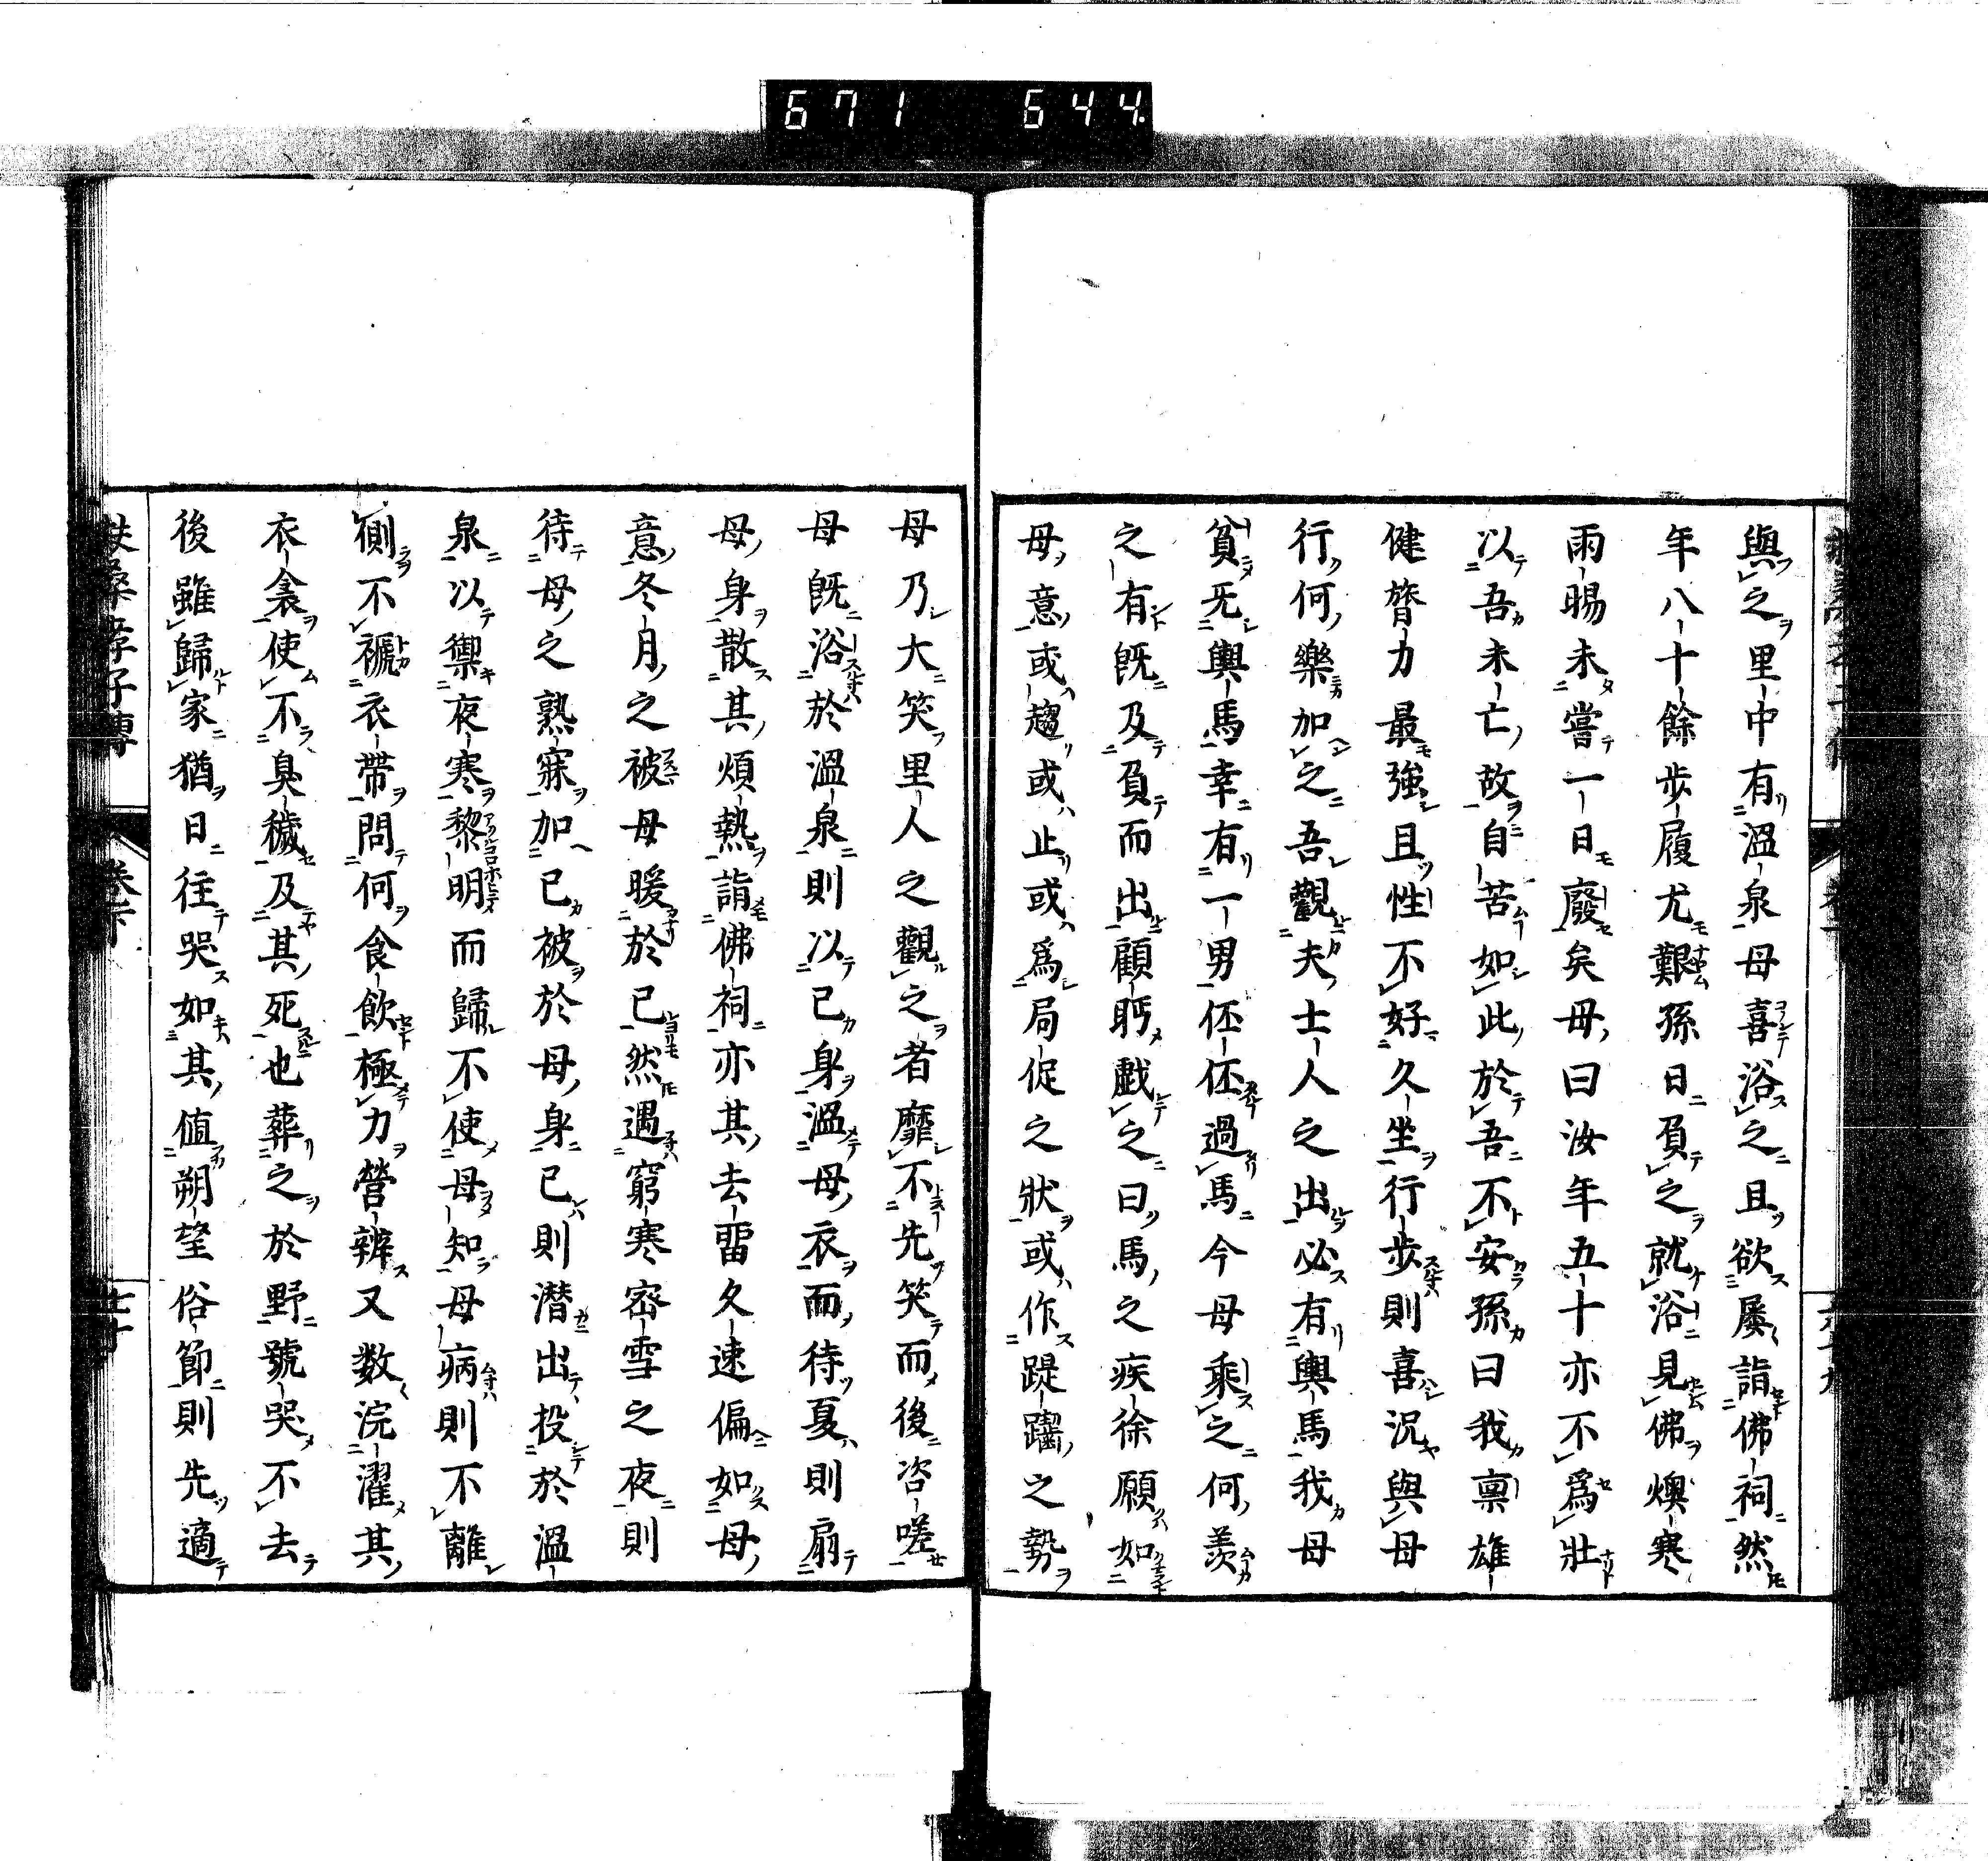 671 644
與之里中有溫泉母喜浴之且欲屡詣佛祠然
年八十餘步履尤艱孫日負之就浴見佛燠寒
雨暘未嘗一日廢矣母曰汝年五十亦不爲壯
以吾未亡故自苦如此於吾不安孫曰我禀雄
健膂力最強且性不好久坐行步則喜況與母
行何樂加之吾觀夫士人之出必有輿馬我母
貧无輿馬幸有一男伾伾過馬今母乘之何羨
之有既及負而出顧眄戲之曰馬之疾徐願如
母意或趨或止或爲局促之狀或作踶躢之勢
母乃大笑里人之觀之者靡不先笑而後咨嗟
母既浴於溫泉則以已身溫母衣而待夏則扇
母身散其煩熱詣佛祠亦其去畱久速偏如母
意冬月之被母暖於已然遇窮寒密雪之夜則
待母之熟寐加已被於母身已則潛出投於溫
泉以禦夜寒黎明而歸不使母知母病則不離
側不褫衣帶問何食飲極力營辨又数浣濯其
衣衾使不臭穢及其死也葬之於野號哭不去
後雖歸家猶日往哭如其値朔望俗節則先適
扶桑孝子傳 卷下